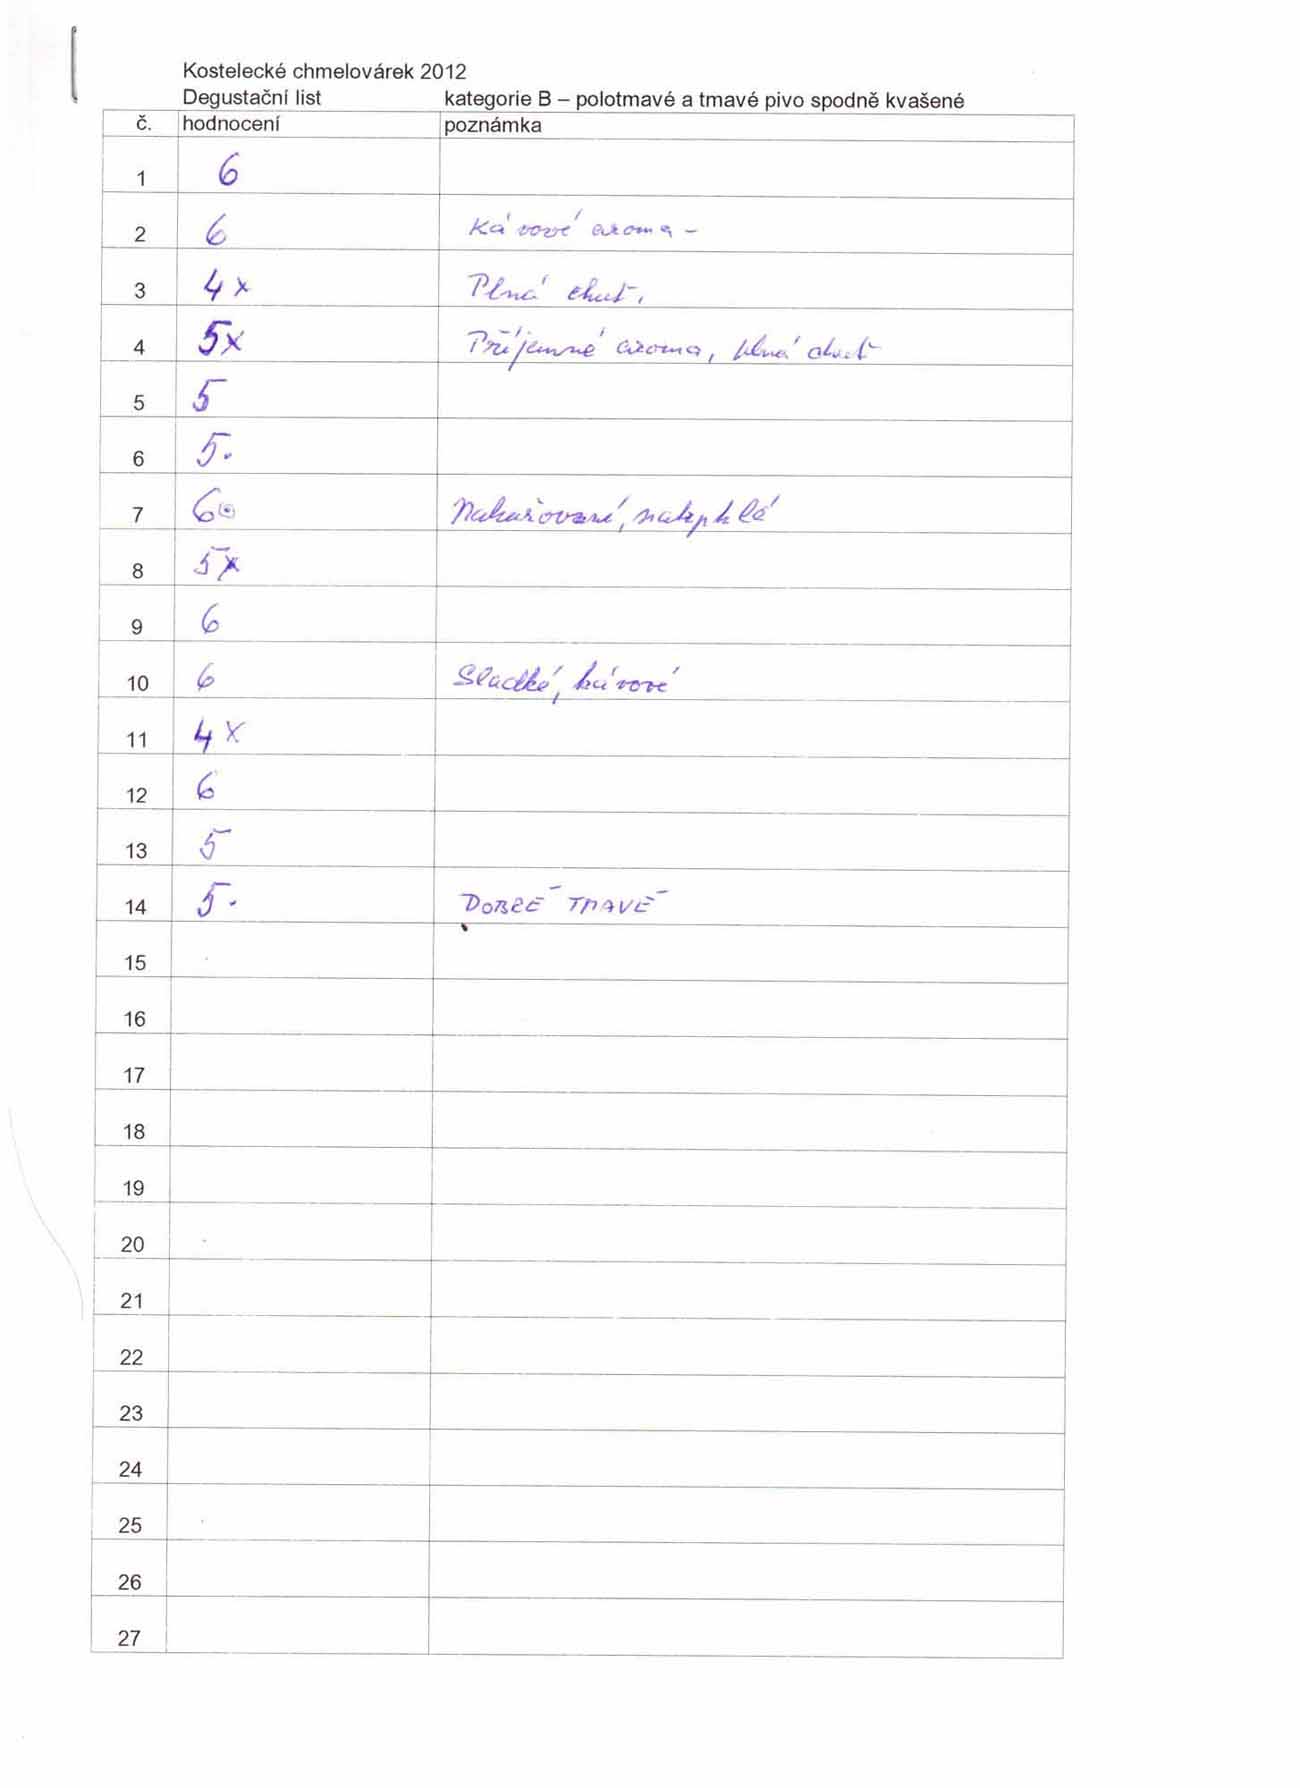 Kostelecké chmelovárek 2012
Degustační list kategorie B – polotmavé a tmavé pivo spodně kvašené
č. hodnocení poznámka
1 6
2 6 Kávové aroma -
3 4 x Plná chuť.
4 5x Příjemné aroma, plná chuť
5 5
6 5.
7 6 Nakuřované, nateklé
8 5x
9 6
10 6 Sladké, kávové
11 4 x
12 6
13 5
14 5. DOBRÉ TMAVÉ
15
16
17
18
19
20
21
22
23
24
25
26
27